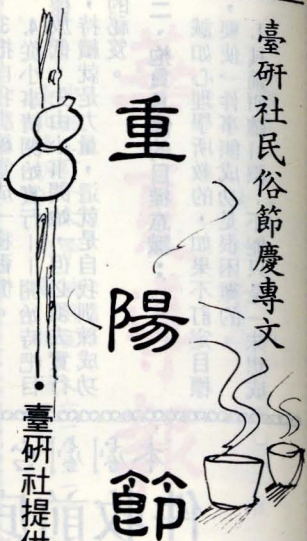 臺研社民俗節慶專文
重陽節
•臺研社提供